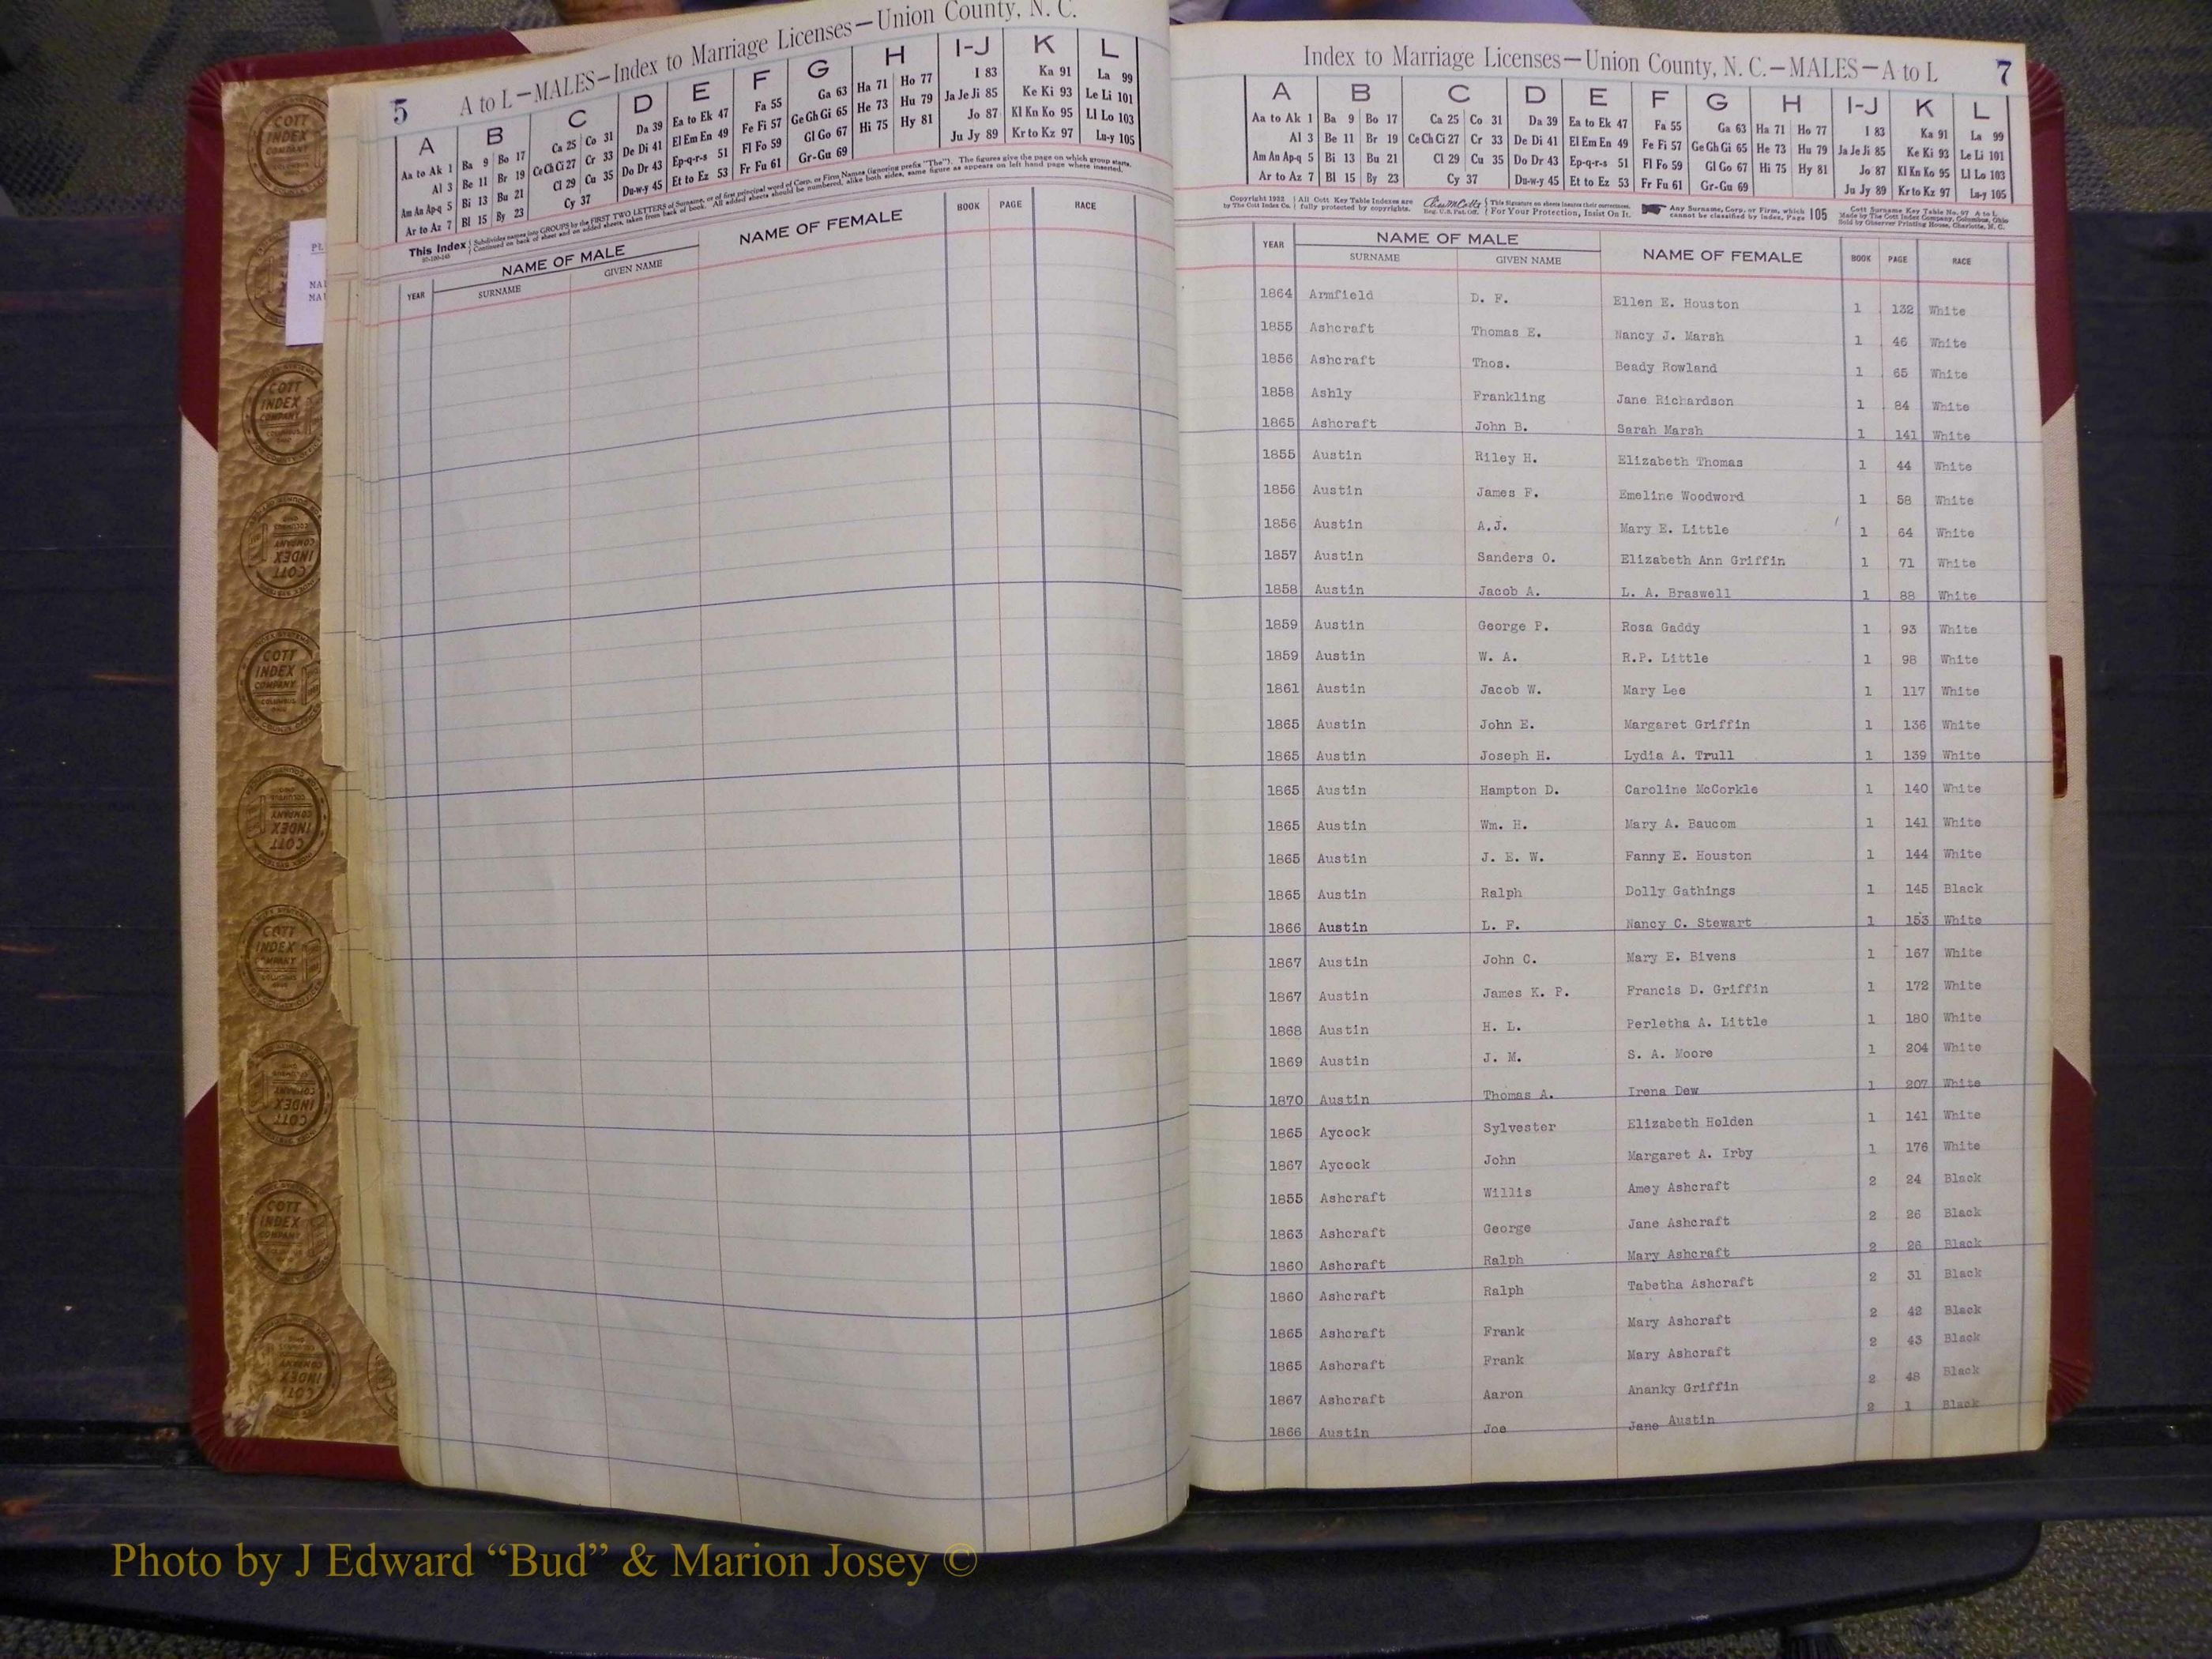 5 A to L—MALES—Index to Marriage Licenses—Union County, N. C.
A B C D E F G H I-J K L
Aa to Ak 1 Ba 9 Bo 17 Ca 25 Co 31 Da 39 Ea to Ek 47 Fa 55 Ga 63 Ha 71 Ho 77 I 83 Ka 91 La 99
Al 3 Be 11 Br 19 Ce Ch Ci 27 Cr 33 De Di 41 El Em En 49 Fe Fi 57 Ge Gh Gi 65 He 73 Hu 79 Ja Je Ji 85 Ke Ki 93 Le Li 101
Am An Ap-q 5 Bi 13 Bu 21 Cl 29 Cu 35 Do Dr 43 Ep-q-r-s 51 Fl Fo 59 Gl Go 67 Hi 75 Hy 81 Jo 87 Kl Kn Ko 95 Ll Lo 103
Ar to Az 7 Bl 15 By 23 Cy 37 Du-w-y 45 Et to Ez 53 Fr Fu 61 Gr-Gu 69 Ju Jy 89 Kr to Kz 97 Lu-y 105
This Index Subdivides names into GROUPS by the FIRST TWO LETTERS of Surname, or of first principal word of Corp. or Firm Names (ignoring prefix "The"). The figures give the page on which group starts.
Continued on back of sheet and on added sheets, taken from back of book. All added sheets should be numbered, alike both sides, same figure as appears on left hand page where inserted.
YEAR NAME OF MALE NAME OF FEMALE BOOK PAGE RACE
SURNAME GIVEN NAME
Index to Marriage Licenses—Union County, N. C.—MALES—A to L 7
A B C D E F G H I-J K L
Aa to Ak 1 Ba 9 Bo 17 Ca 25 Co 31 Da 39 Ea to Ek 47 Fa 55 Ga 63 Ha 71 Ho 77 I 83 Ka 91 La 99
Al 3 Be 11 Br 19 Ce Ch Ci 27 Cr 33 De Di 41 El Em En 49 Fe Fi 57 Ge Gh Gi 65 He 73 Hu 79 Ja Je Ji 85 Ke Ki 93 Le Li 101
Am An Ap-q 5 Bi 13 Bu 21 Cl 29 Cu 35 Do Dr 43 Ep-q-r-s 51 Fl Fo 59 Gl Go 67 Hi 75 Hy 81 Jo 87 Kl Kn Ko 95 Ll Lo 103
Ar to Az 7 Bl 15 By 23 Cy 37 Du-w-y 45 Et to Ez 53 Fr Fu 61 Gr-Gu 69 Ju Jy 89 Kr to Kz 97 Lu-y 105
Copyright 1922 All Cott Key Table Indexes are This Signature on sheets insures their correctness. Any Surname, Corp. or Firm, which Cott Surname Key Table No. 97 A to L
by The Cott Index Co. fully protected by copyrights. Reg. U.S. Pat. Off. For Your Protection, Insist On It. cannot be classified by index, Page 105 Made by The Cott Index Company, Columbus, Ohio
Sold by Observer Printing House, Charlotte, N. C.
YEAR NAME OF MALE NAME OF FEMALE BOOK PAGE RACE
SURNAME GIVEN NAME
1864 Armfield D. F. Ellen E. Houston 1 132 White
1855 Ashcraft Thomas E. Nancy J. Marsh 1 46 White
1856 Ashcraft Thos. Beady Rowland 1 65 White
1858 Ashly Frankling Jane Richardson 1 84 White
1865 Ashcraft John B. Sarah Marsh 1 141 White
1855 Austin Riley H. Elizabeth Thomas 1 44 White
1856 Austin James F. Emeline Woodword 1 58 White
1856 Austin A.J. Mary E. Little 1 64 White
1857 Austin Sanders O. Elizabeth Ann Griffin 1 71 White
1858 Austin Jacob A. L. A. Braswell 1 88 White
1859 Austin George P. Rosa Gaddy 1 93 White
1859 Austin W. A. R.P. Little 1 98 White
1861 Austin Jacob W. Mary Lee 1 117 White
1865 Austin John E. Margaret Griffin 1 136 White
1865 Austin Joseph H. Lydia A. Trull 1 139 White
1865 Austin Hampton D. Caroline McCorkle 1 140 White
1865 Austin Wm. H. Mary A. Baucom 1 141 White
1865 Austin J. E. W. Fanny E. Houston 1 144 White
1865 Austin Ralph Dolly Gathings 1 145 Black
1866 Austin L. F. Nancy C. Stewart 1 153 White
1867 Austin John C. Mary E. Bivens 1 167 White
1867 Austin James K. P. Francis D. Griffin 1 172 White
1868 Austin H. L. Perletha A. Little 1 180 White
1869 Austin J. M. S. A. Moore 1 204 White
1870 Austin Thomas A. Irena Dew 1 207 White
1865 Aycock Sylvester Elizabeth Holden 1 141 White
1867 Aycock John Margaret A. Irby 1 176 White
1855 Ashcraft Willis Amey Ashcraft 2 24 Black
1863 Ashcraft George Jane Ashcraft 2 26 Black
1860 Ashcraft Ralph Mary Ashcraft 2 26 Black
1860 Ashcraft Ralph Tabetha Ashcraft 2 31 Black
1865 Ashcraft Frank Mary Ashcraft 2 42 Black
1865 Ashcraft Frank Mary Ashcraft 2 43 Black
1867 Ashcraft Aaron Ananky Griffin 2 48 Black
1866 Austin Joe Jane Austin 2 1 Black
Photo by J Edward “Bud” & Marion Josey ©